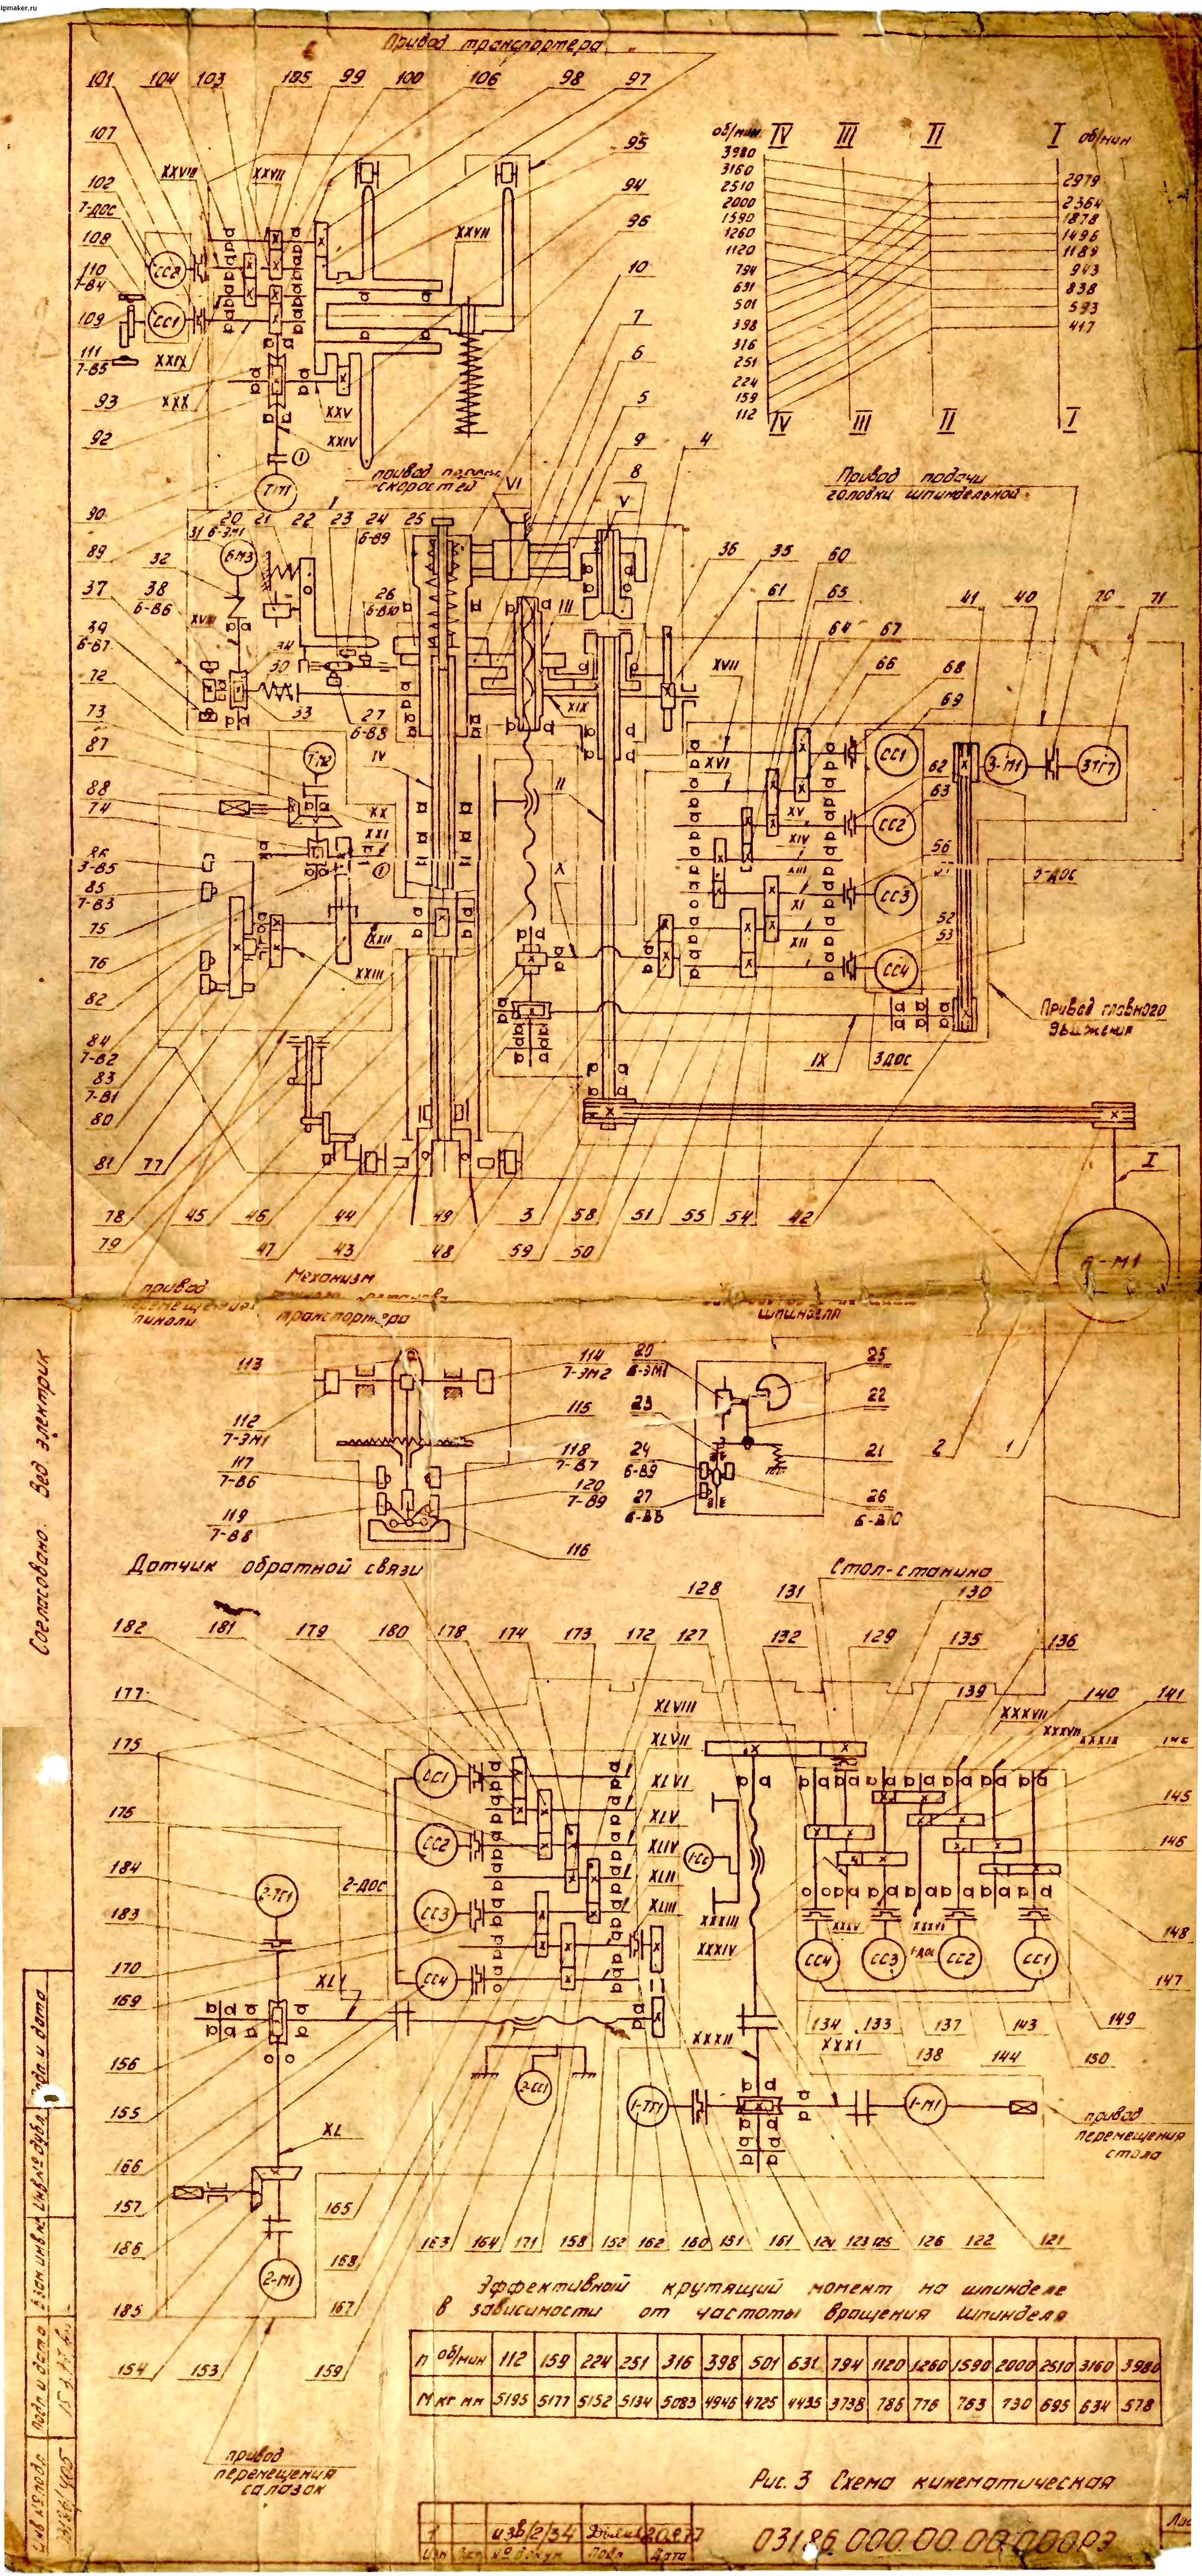 ipmaker.ru
Привод транспортера
101 104 103 105 99 100 106 98 97
107
95
102
7-ДОС
94
108
96
110
7-В4
10
109
7
111
7-В5
6
93
5
92
4
9
8
XXVIII XXVII XXVII
СС2
СС1
XXIX
XXX
XXV
XXIV
ТМ1
об/мин IV III II I об/мин
3980
3160
2510
2000
1590
1260
1120
794
631
501
398
316
251
224
159
112
2979
2364
1878
1496
1189
943
838
593
417
IV III II I
привод
скоростей
Привод подачи
головки шпиндельной
VI
V
90
89
37
31 20 21 22 23 24 25
6-ЭМ1
6-В9
6М3
32
38
6-В6
26
6-В10
39
6-В7
34
30
33
27
6-В8
72
73
87
88
74
36 35 60
61 65 41 40 70 71
64 67
66 68
69
III
XIX
XVII
XVI
XV
XIV
XIII
XI
XII
62
63
56
52
53
СС1
СС2
СС3
СС4
3-М1
3ТГ1
3-ДОС
Привод главного
движения
IX
3ДОС
IV
II
X
ТМ2
XX
XXI
XXII
XXIII
86
3-В5
85
7-В3
75
76
82
84
7-В2
83
7-В1
80
81 77
78 45 46 44 49 3 58 51 55 54 42
79 47 43 48 59 50
I
6-М1
привод
перемещения
пиноли
Механизм
транспортера
шпинделя
113
114
7-ЭМ2
112
7-ЭМ1
115
117
7-В6
118
7-В7
119
7-В8
120
7-В9
116
20
6-ЭМ1
25
23
22
24
6-В9
21
27
6-В8
26
6-В10
2 1
Согласовано. Вед электрик
Датчик обратной связи
Стол-станина
128 131 130
182 181 179 180 178 174 173 172 127 132 129 135 136
177
139 140 141
175
XLVIII
XLVII
XLVI
XLV
XLIV
XLII
XLIII
XXXVII
XXXIX
145
146
148
147
149
СС1
СС2
СС3
СС4
2-ДОС
184
2-ТГ1
183
170
169
XLI
156
155
XL
166
157
186
185
2-М1
154 153 159
1-СС
XXXIII
XXXIV
XXXV
XXXVI
СС4 СС3 1-ДОС СС2 СС1
134 133 137 143
XXXI
138 144 150
XXXII
2-СС1
1-ТГ1
1-М1
привод
перемещения
стола
165
168
167
163 164 171 158 152 162 160 151 161 124 123 125 126 122 121
Эффективный крутящий момент на шпинделе
в зависимости от частоты вращения шпинделя
n об/мин 112 159 224 251 316 398 501 631 794 1120 1260 1590 2000 2510 3160 3980
М кг мм 5195 5177 5152 5134 5083 4946 4725 4435 3738 786 776 763 730 695 634 578
привод
перемещения
салазок
Рис. 3 Схема кинематическая
03186.000.00.00.000РЭ
Инв № подл. Подп и дата Взам. инв № Инв № дубл. Подп. и дата
Изм Лист № докум Подп. Дата